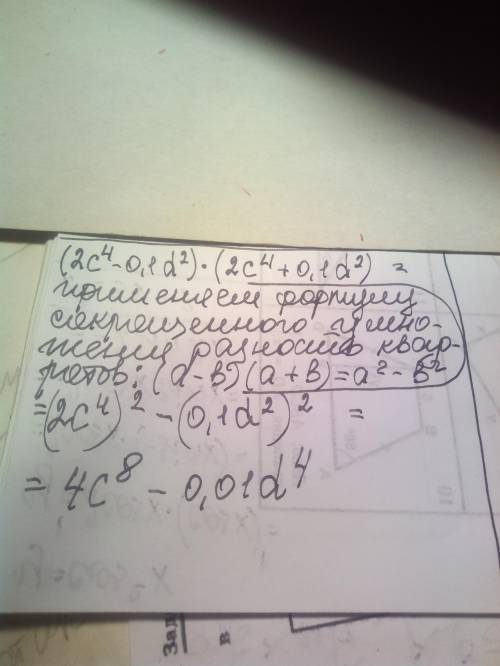 (2c⁴-0,1d²)·(2c⁴+0,1d²) =
применяем формулу
сокращенного умно-
жения разность квад-
ратов: (a-b)(a+b)=a²-b²
=(2c⁴)² - (0,1d²)² =
= 4c⁸ - 0,01d⁴
Зад
в